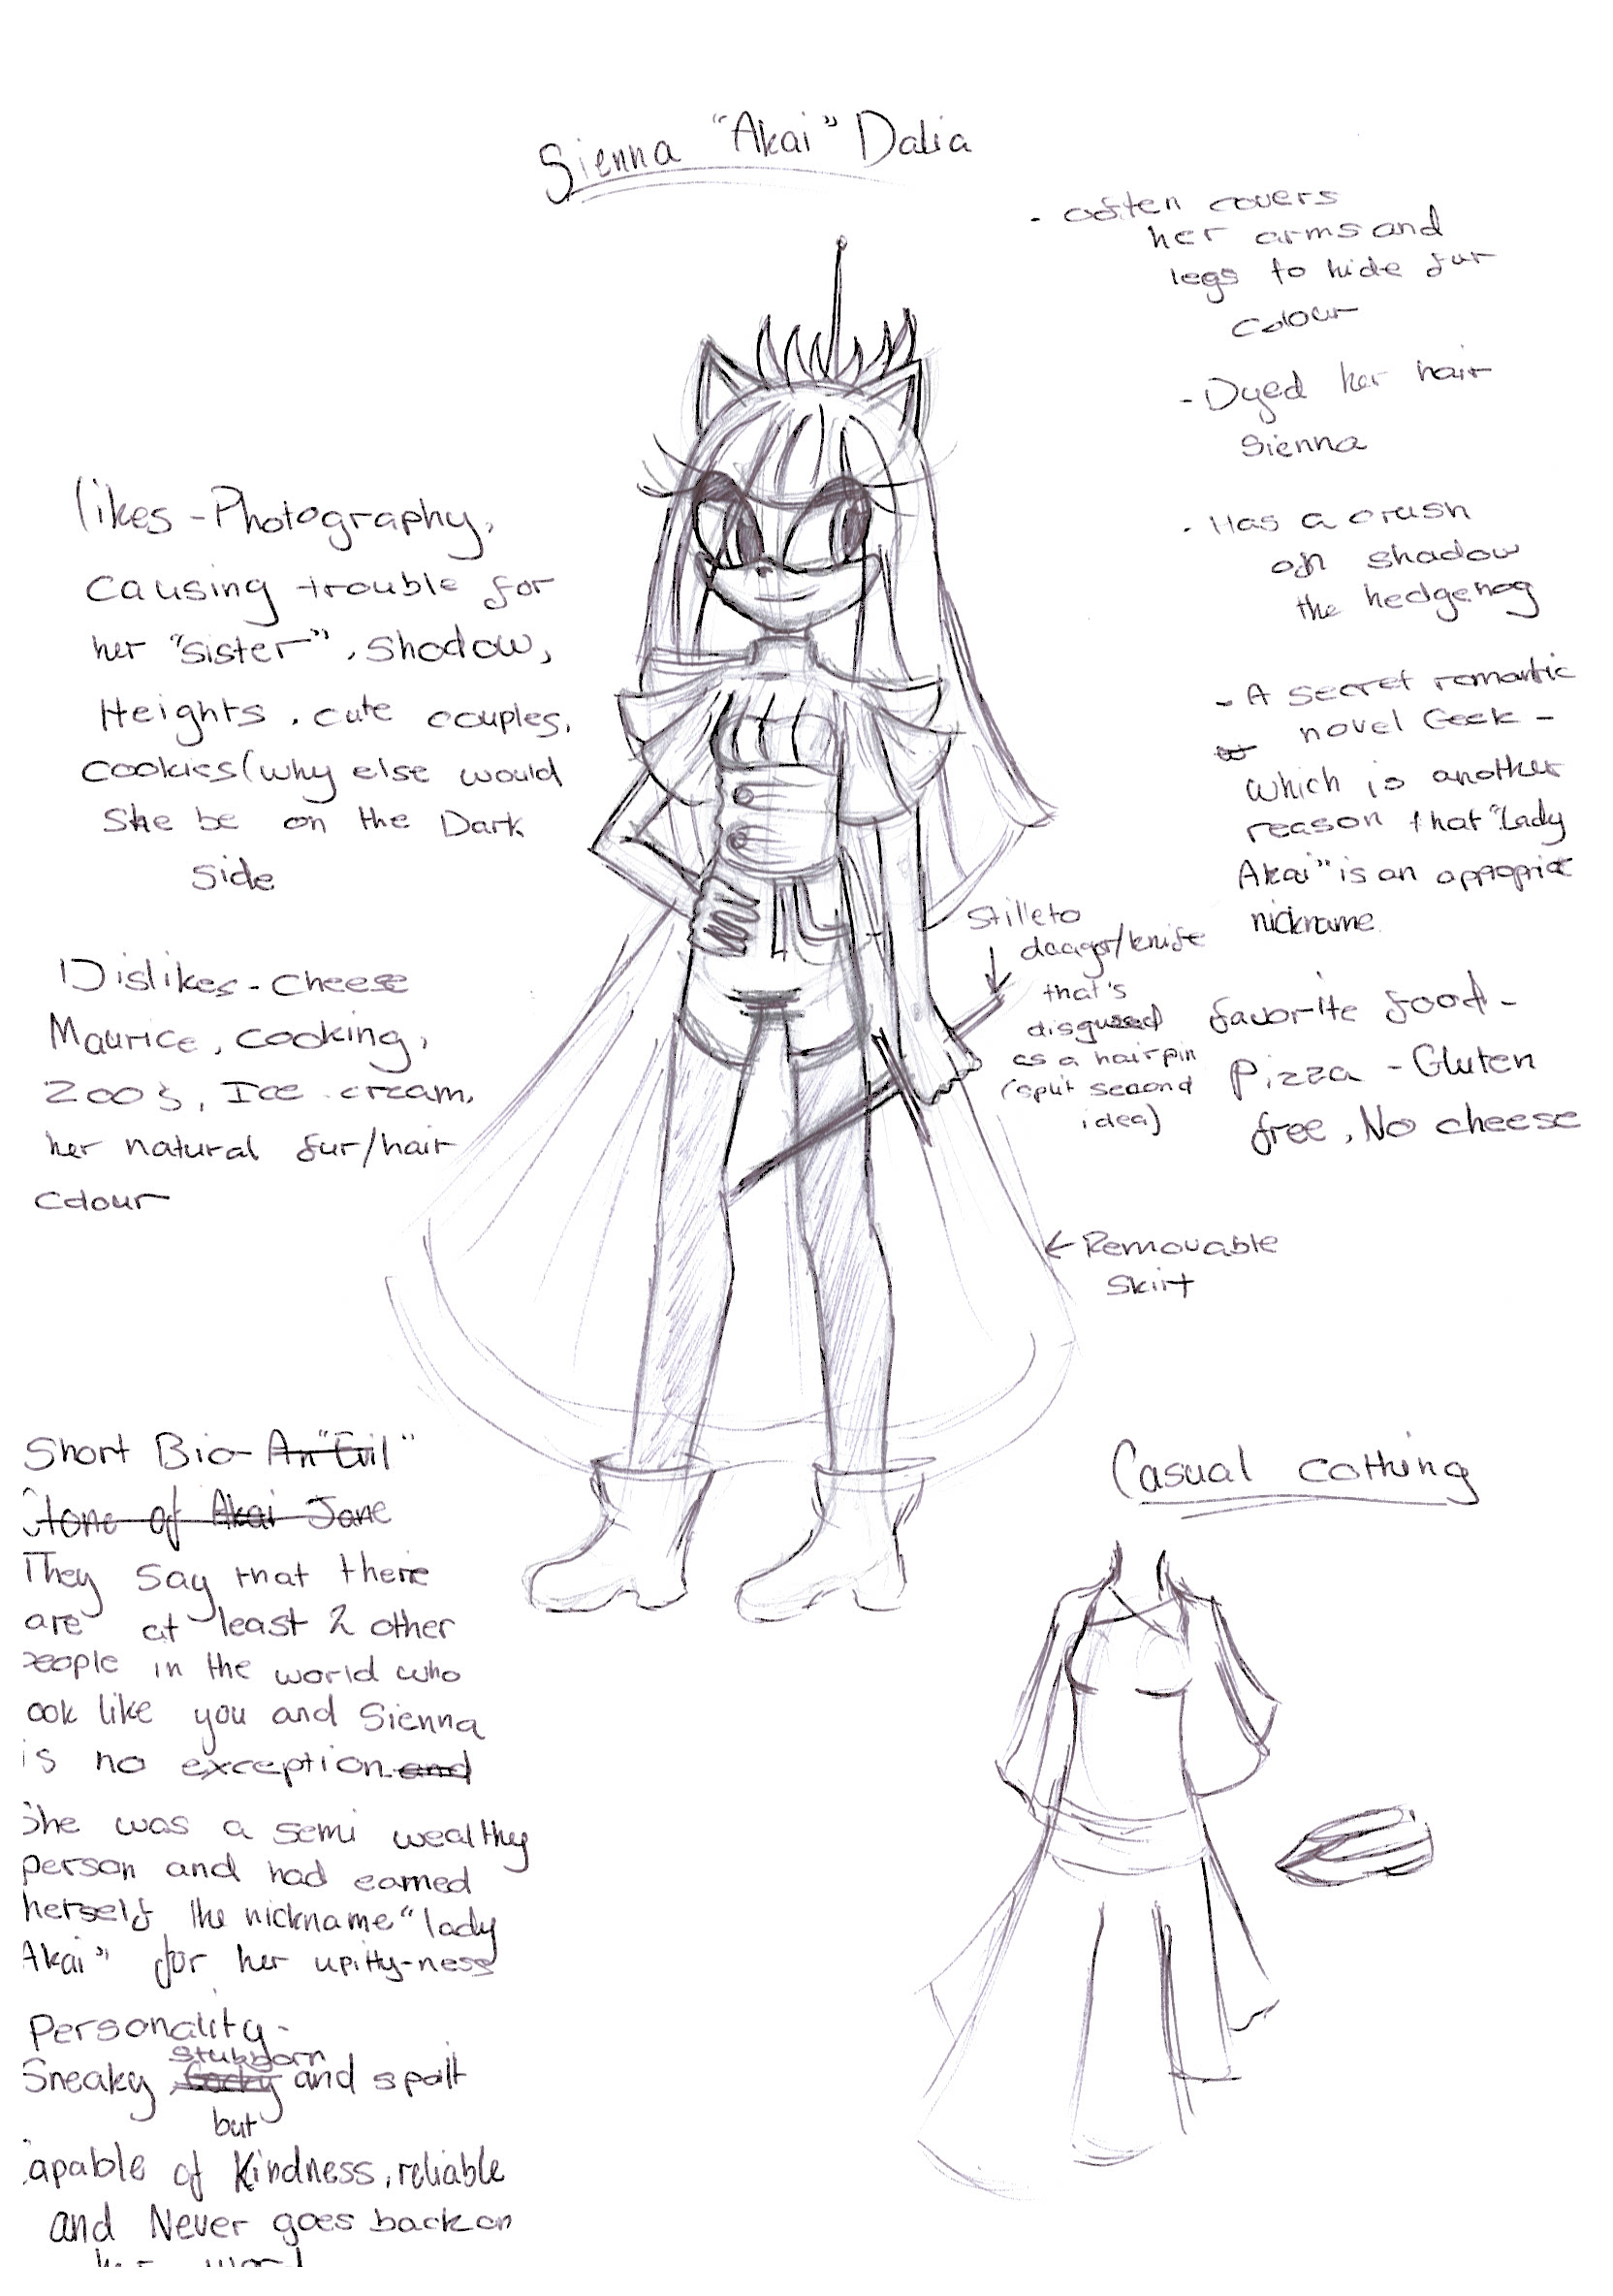 Sienna "Akai" Dalia
- often covers
her arms and
legs to hide fur
colour
- Dyed her hair
Sienna
- Has a crush
on shadow
the hedgehog
- A secret romantic
novel Geek -
which is another
reason that "Lady
Akai" is an appropriate
nickname.
favorite food -
pizza - Gluten
free, No cheese
likes - Photography,
causing trouble for
her "sister", Shadow,
Heights, cute couples,
cookies (why else would
she be on the Dark
side
Dislikes - cheese
Maurice, cooking,
zoo's, Ice cream,
her natural fur/hair
colour
Stilleto
daager/knife
that's
disgused
as a hairpin
(split second
idea)
← Removable
skirt
Short Bio - An "Evil"
Clone of Akai Jane
They say that there
are at least 2 other
people in the world who
ook like you and Sienna
is no exception. and
She was a semi wealthy
person and had earned
herself the nickname "lady
Akai" for her upitty-ness
Personality -
stubborn
Sneaky, Cocky and spoilt
but
capable of kindness, reliable
and Never goes back on
her word
Casual cothing